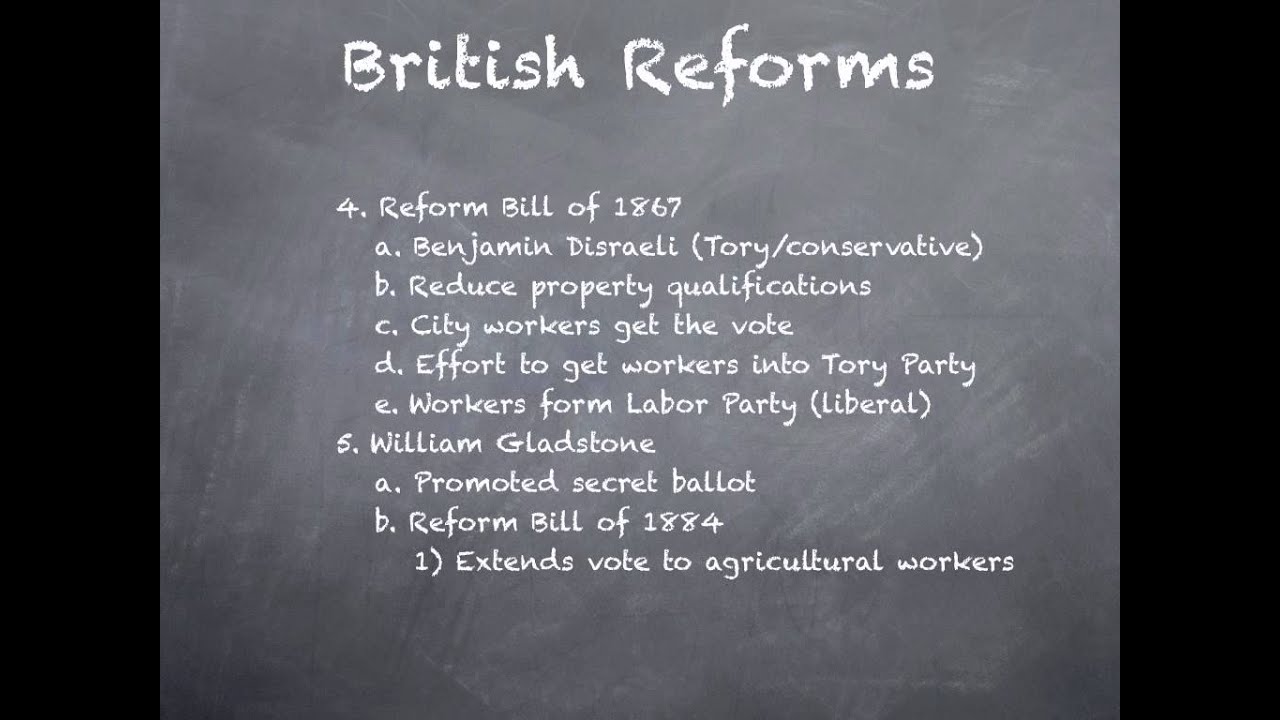 British Reforms
4. Reform Bill of 1867
a. Benjamin Disraeli (Tory/conservative)
b. Reduce property qualifications
c. City workers get the vote
d. Effort to get workers into Tory Party
e. Workers form Labor Party (liberal)
5. William Gladstone
a. Promoted secret ballot
b. Reform Bill of 1884
1) Extends vote to agricultural workers